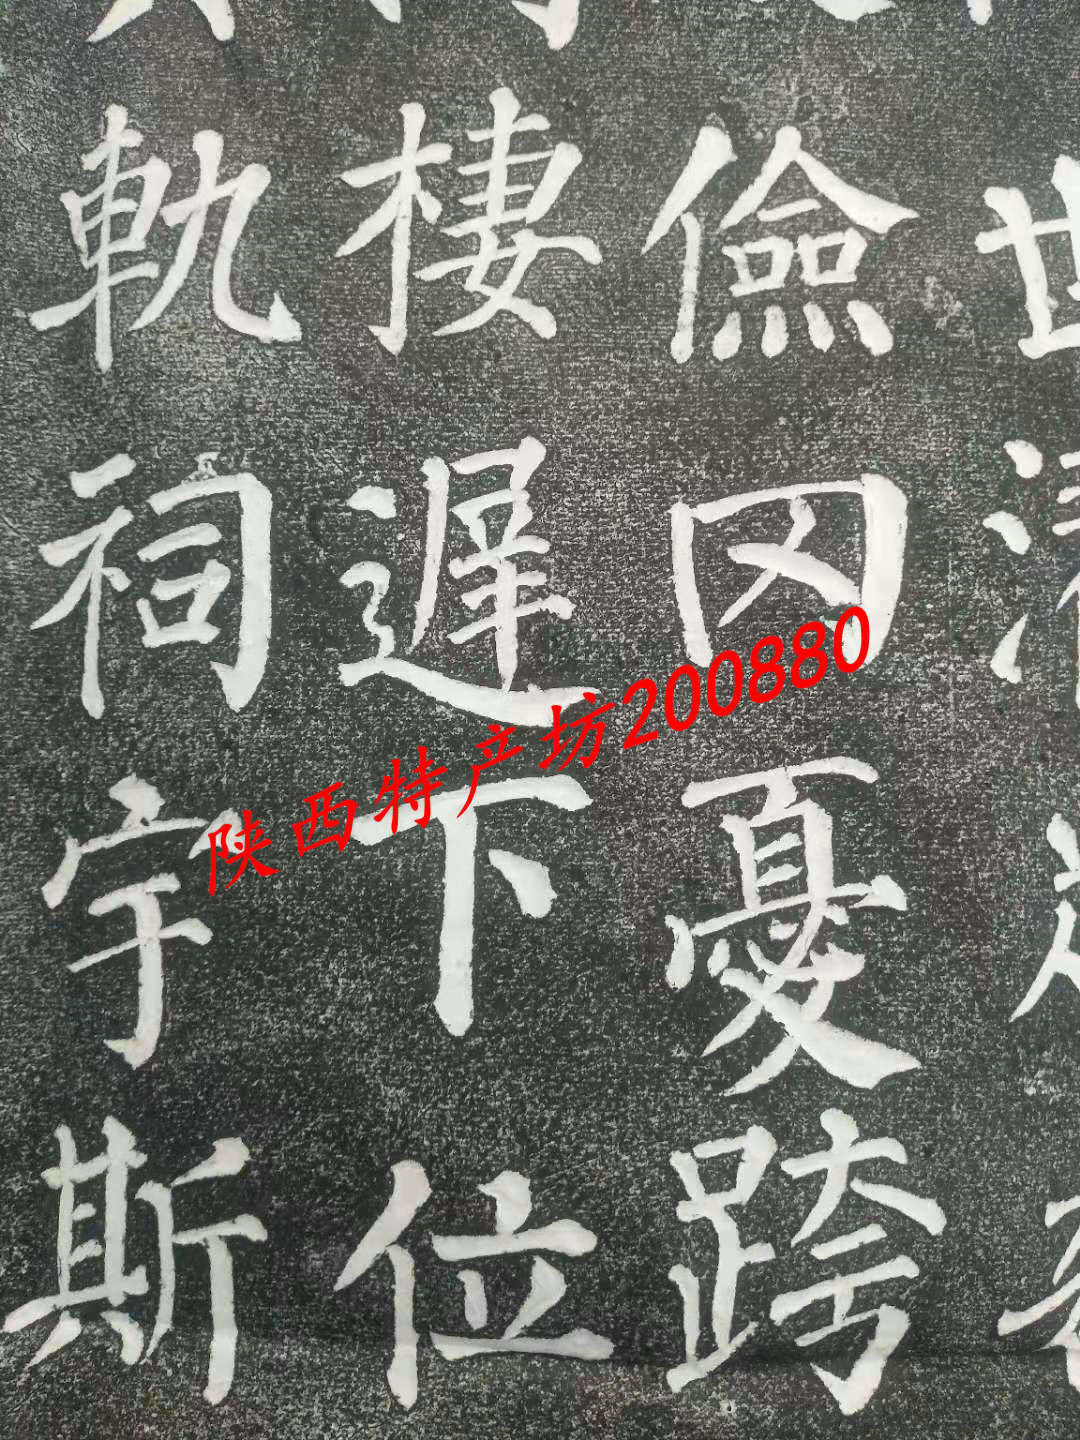 儉罔憂跨
棲遲下位
軌祠宇斯
陕西特产坊200880